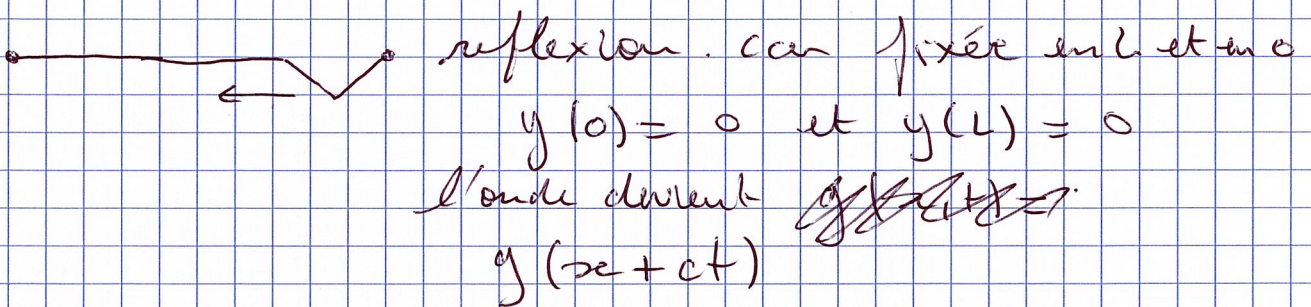 reflexion. car fixée en L et en 0
y(0) = 0 et y(L) = 0
l'onde devient
g(x+ct)